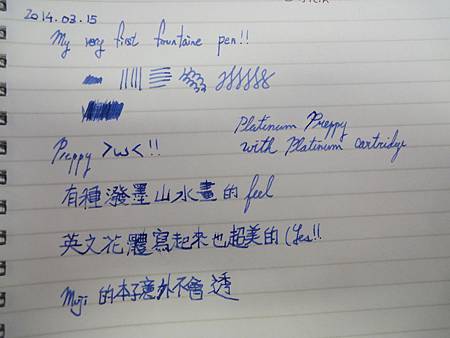 2014.03.15
My very first fountaine pen!!
Platinum Preppy
with Platinum cartridge
Preppy >w<!!
有種潑墨山水畫的feel
英文花體寫起來也超美的(Yes!!
Muji 的本子意外不會透